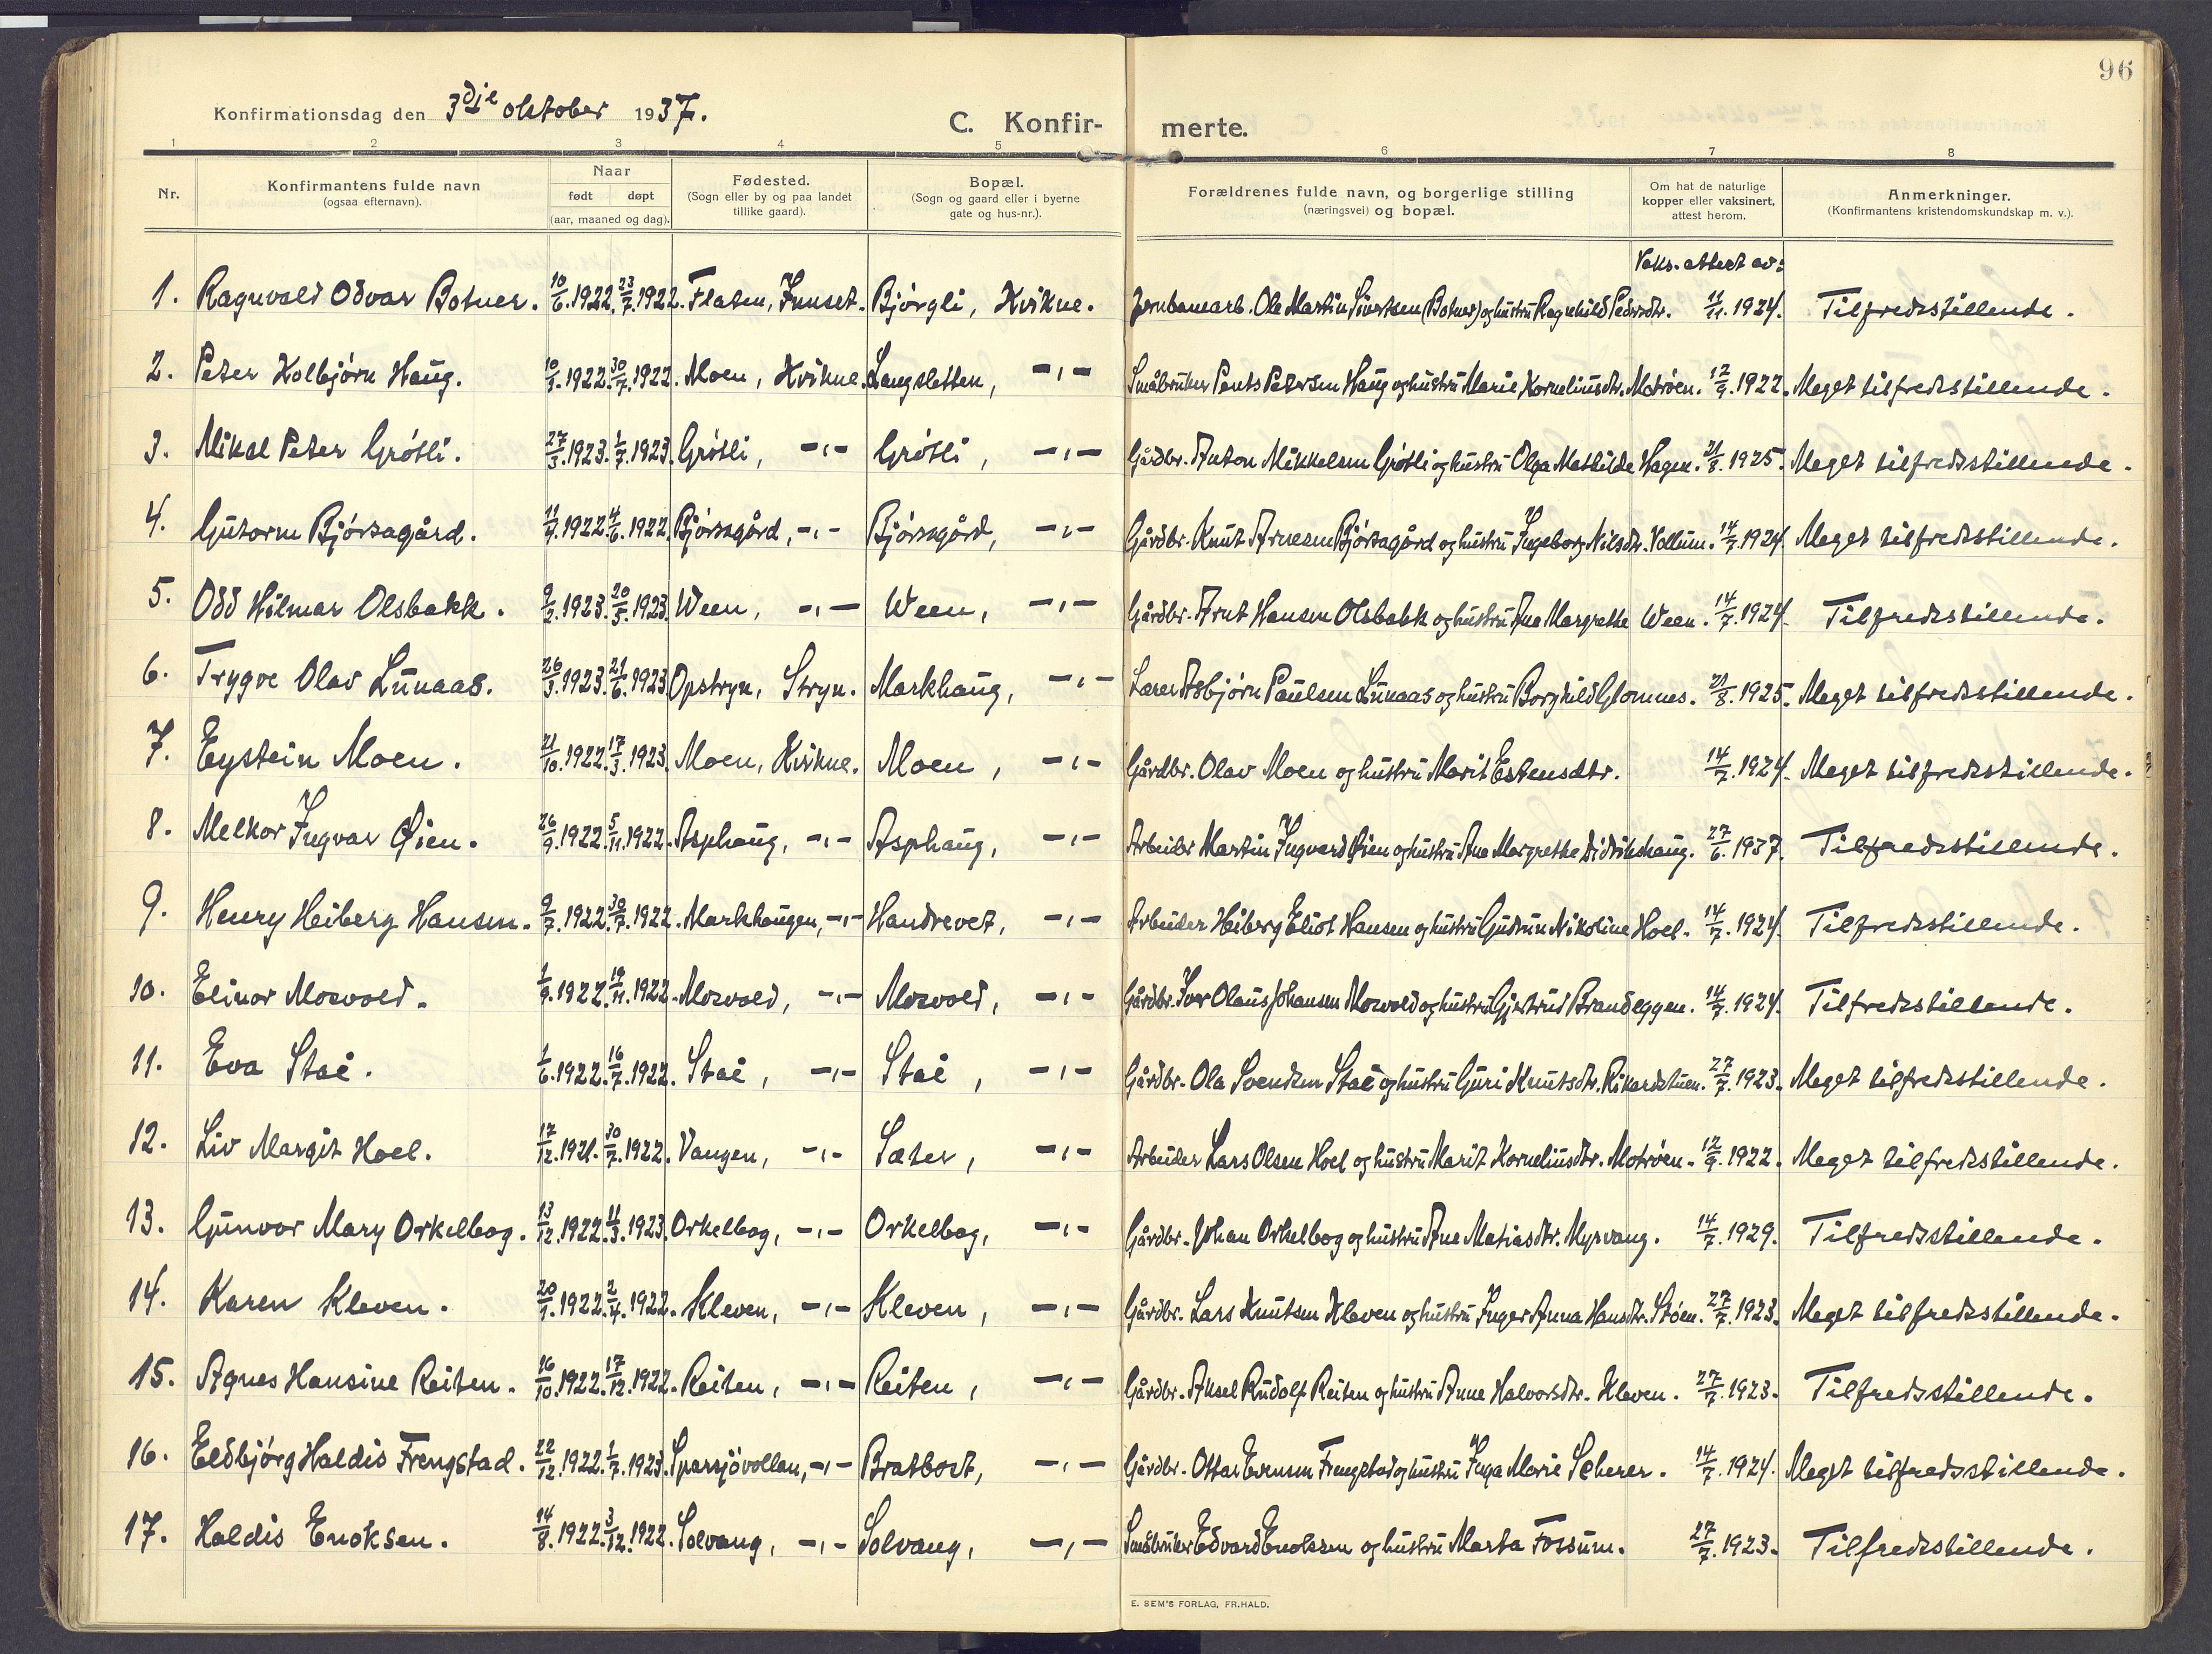 96
Konfirmationsdag den 3dje oktober 1937.
C. Konfir- merte.
1 2 3 4 5 6 7 8
Nr. Konfirmantens fulde navn (ogsaa efternavn). Naar født døpt (aar, maaned og dag). Fødested. (Sogn eller by og paa landet tillike gaard). Bopæl. (Sogn og gaard eller i byerne gate og hus-nr.). Forældrenes fulde navn, og borgerlige stilling (næringsvei) og bopæl. Om hat de naturlige kopper eller vaksinert, attest herom. Anmerkninger. (Konfirmantens kristendomskundskap m. v.).
Vaks. attest av:
1. Ragnvald Odvar Botner. 10/6.1922. 23/7.1922. Flaten, Innset. Bjørgli, Kvikne. Jernbanearb. Ole Martin Sivertsen (Botner) og hustru Ragnhild Pedersdtr. 11/11.1924. Tilfredsstillende.
2. Peter Kolbjørn Haug. 10/3.1922. 30/7.1922. Moen, Kvikne. Langsletten, -,- Småbruker Pents Petersen Haug og hustru Marie Korneliusdtr. Motrøen. 12/9.1922. Meget tilfredsstillende.
3. Mikal Peter Grøtli. 27/3.1923. 1/7.1923. Grøtli, -,- Grøtli, -,- Gårdbr. Anton Mikkelsen Grøtli og hustru Olga Mathilde Hagen. 21/8.1925. Meget tilfredsstillende.
4. Gutorm Bjørsagård. 11/4.1922. 4/6.1922. Bjørsagård, -,- Bjørsagård, -,- Gårdbr. Knut Arnesen Bjørsagård og hustru Ingeborg Nilsdtr. Vollum. 14/7.1924. Meget tilfredsstillende.
5. Odd Hilmar Olsbakk. 9/2.1923. 20/5.1923. Ween, -,- Ween, -,- Gårdbr. Arnt Hansen Olsbakk og hustru Ane Margrethe Ween. 14/7.1924. Tilfredsstillende.
6. Trygve Olav Lunaas. 26/3.1923. 21/6.1923. Opstryn, Stryn. Markhaug, -,- Lærer Asbjørn Paulsen Lunaas og hustru Borghild Glomnes. 21/8.1925. Meget tilfredsstillende.
7. Eystein Moen. 21/10.1922. 17/3.1923. Moen, Kvikne. Moen, -,- Gårdbr. Olav Moen og hustru Marit Estensdtr. 14/7.1924. Meget tilfredsstillende.
8. Melkor Ingvar Øien. 26/9.1922. 5/11.1922. Asphaug, -,- Asphaug, -,- Arbeider Martin Ingvard Øien og hustru Ane Margrethe Didrikshaug. 27/6.1937. Tilfredsstillende.
9. Henry Heiberg Hansen. 9/7.1922. 30/7.1922. Markhaugen, -,- Handrevet, -,- Arbeider Heiberg Eliot Hansen og hustru Gudrun Nikoline Hoel. 14/7.1924. Tilfredsstillende.
10. Elinor Mosvold. 1/9.1922. 19/11.1922. Mosvold, -,- Mosvold, -,- Gårdbr. Iver Olaus Johansen Mosvold og hustru Gjertrud Brandeggen. 14/7.1924. Tilfredsstillende.
11. Eva Stai. 1/6.1922. 16/7.1922. Stai, -,- Stai, -,- Gårdbr. Ola Svendsen Stai og hustru Guri Knutsdtr. Rikardstuen. 27/7.1923. Meget tilfredsstillende.
12. Liv Margit Hoel. 17/12.1921. 30/7.1922. Vangen, -,- Sæter, -,- Arbeider Lars Olsen Hoel og hustru Marit Korneliusdtr. Motrøen. 12/9.1922. Meget tilfredsstillende.
13. Gunvor Mary Orkelbog. 13/12.1922. 11/3.1923. Orkelbog, -,- Orkelbog, -,- Gårdbr. Johan Orkelbog og hustru Ane Matiasdtr. Myrvang. 14/7.1929. Tilfredsstillende.
14. Karen Kleven. 20/1.1922. 2/4.1922. Kleven, -,- Kleven, -,- Gårdbr. Lars Knutsen Kleven og hustru Inger Anna Hansdtr. Støen. 27/7.1923. Meget tilfredsstillende.
15. Agnes Hansine Reiten. 16/10.1922. 17/12.1922. Reiten, -,- Reiten, -,- Gårdbr. Aksel Rudolf Reiten og hustru Anne Halvorsdtr. Kleven. 27/7.1923. Tilfredsstillende.
16. Eldbjørg Haldis Frengstad. 22/12.1922. 1/7.1923. Sparsjøvollan, -,- Bratbort, -,- Gårdbr. Ottar Evensen Frengstad og hustru Inga Marie Scherer. 14/7.1924. Meget tilfredsstillende.
17. Haldis Enoksen. 14/8.1922. 3/12.1922. Solvang, -,- Solvang, -,- Småbruker Edvard Enoksen og hustru Marta Fossum. 27/7.1923. Tilfredsstillende.
E. SEM'S FORLAG, FR.HALD.